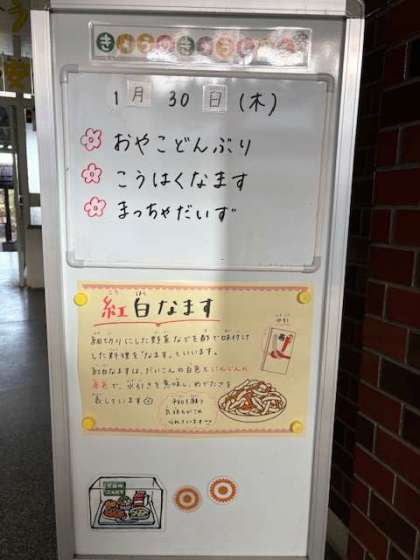 きょうのきゅうしょく
1月30日(木)
おやこどんぶり
こうはくなます
まっちゃだいず
紅白なます
細切りにした野菜などを酢で味付け
した料理を「なます」といいます。
紅白なますは、だいこんの白色とにんじんの
赤色で、水引きを意味し、めでたさを
表しています
平和を願う
気持ちがこめ
られています